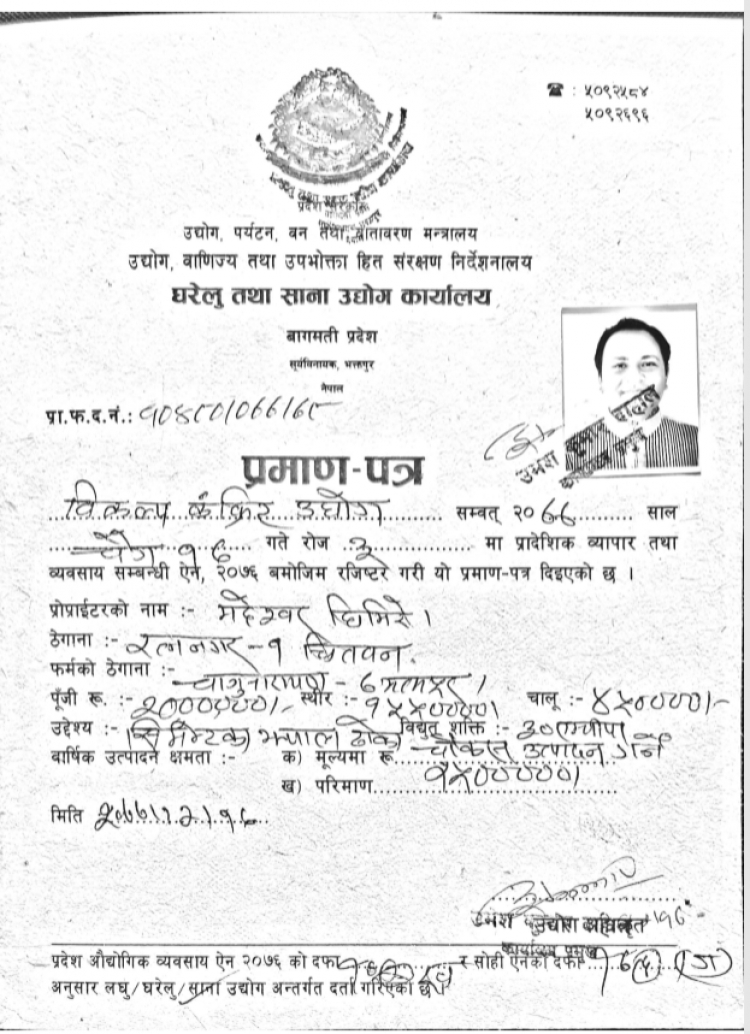 ☎ : ५०९२५८४
५०९२६९६
प्रदेश सरकार
उद्योग, पर्यटन, वन तथा वातावरण मन्त्रालय
उद्योग, वाणिज्य तथा उपभोक्ता हित संरक्षण निर्देशनालय
घरेलु तथा साना उद्योग कार्यालय
बागमती प्रदेश
सूर्यविनायक, भक्तपुर
नेपाल
प्रा.फ.द.नं.:
उमेश कुमार दाहाल
कार्यालय प्रमुख
प्रमाण-पत्र
विकल्प कंक्रिट उद्योग सम्वत् २०७७ साल
चैत्र १८ गते रोज ३ मा प्रादेशिक व्यापार तथा
व्यवसाय सम्बन्धी ऐन, २०७६ बमोजिम रजिष्टर गरी यो प्रमाण-पत्र दिइएको छ ।
प्रोप्राईटरको नाम :- महेश्वर घिमिरे ।
ठेगाना :- रत्ननगर - १ चितवन.
फर्मको ठेगाना :- चाँगुनारायण - ८ भक्तपुर ।
पूँजी रू. :- स्थीर :- चालू :- ४५०००००।-
उद्देश्य :- सिमेन्टका झ्याल ढोका चौकास उत्पादन गर्ने विद्युत् शक्ति :- ३० एम्पीयर
बार्षिक उत्पादन क्षमता :- क) मूल्यमा रू. १५००००००।
ख) परिमाण
मिति २०७७।१२।१८
उद्योग अधिकृत
कार्यालय प्रमुख
प्रदेश औद्योगिक व्यवसाय ऐन २०७६ को दफा र सोही ऐनको दफा
अनुसार लघु/घरेलु/साना उद्योग अन्तर्गत दर्ता गरिएको छ ।